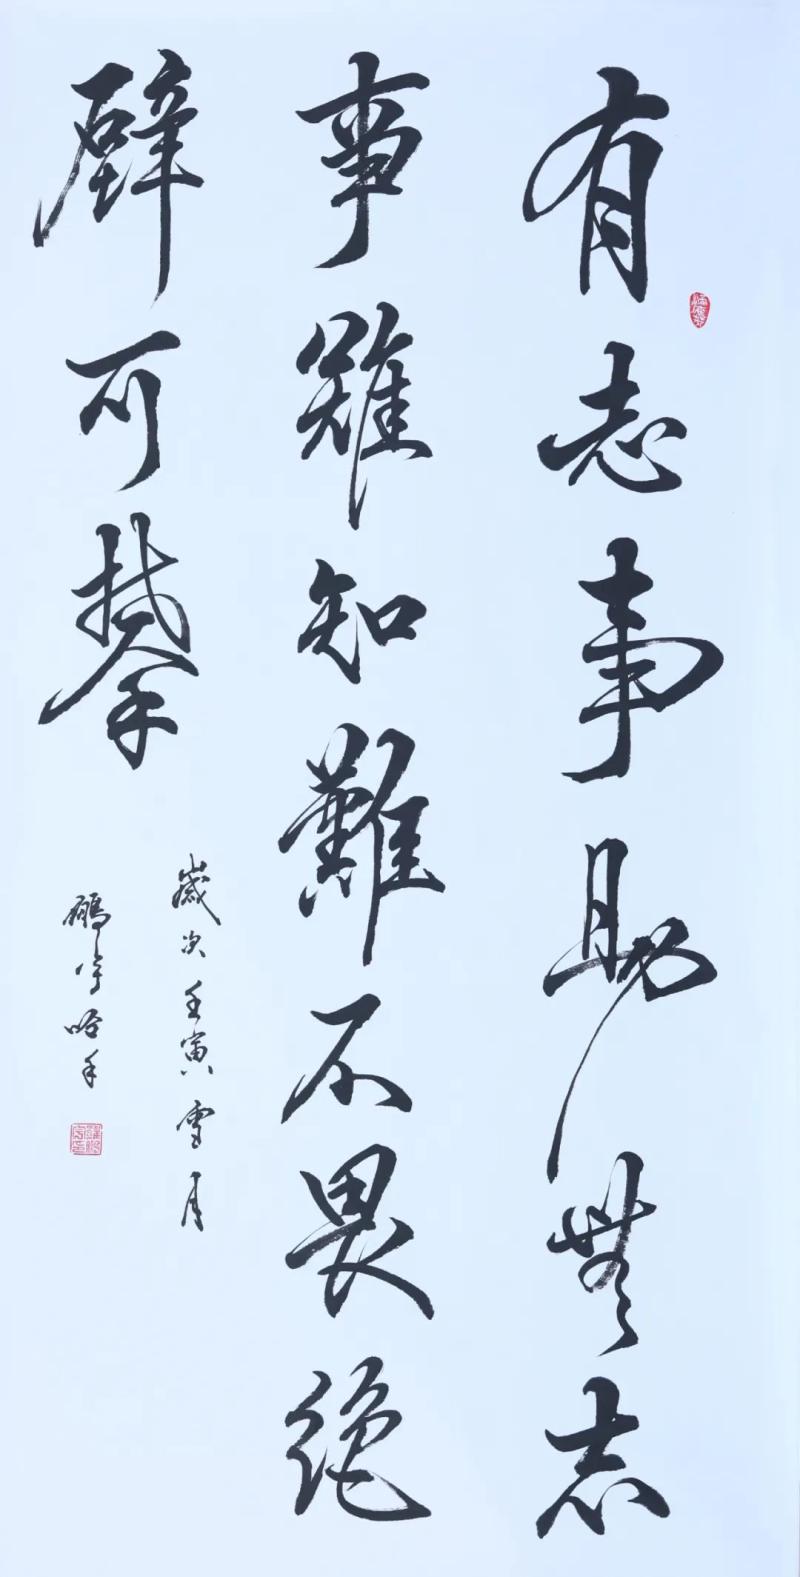 有志事助無志
事難知難不畏絶
壁可攀
歲次壬寅雪月
鵬宇